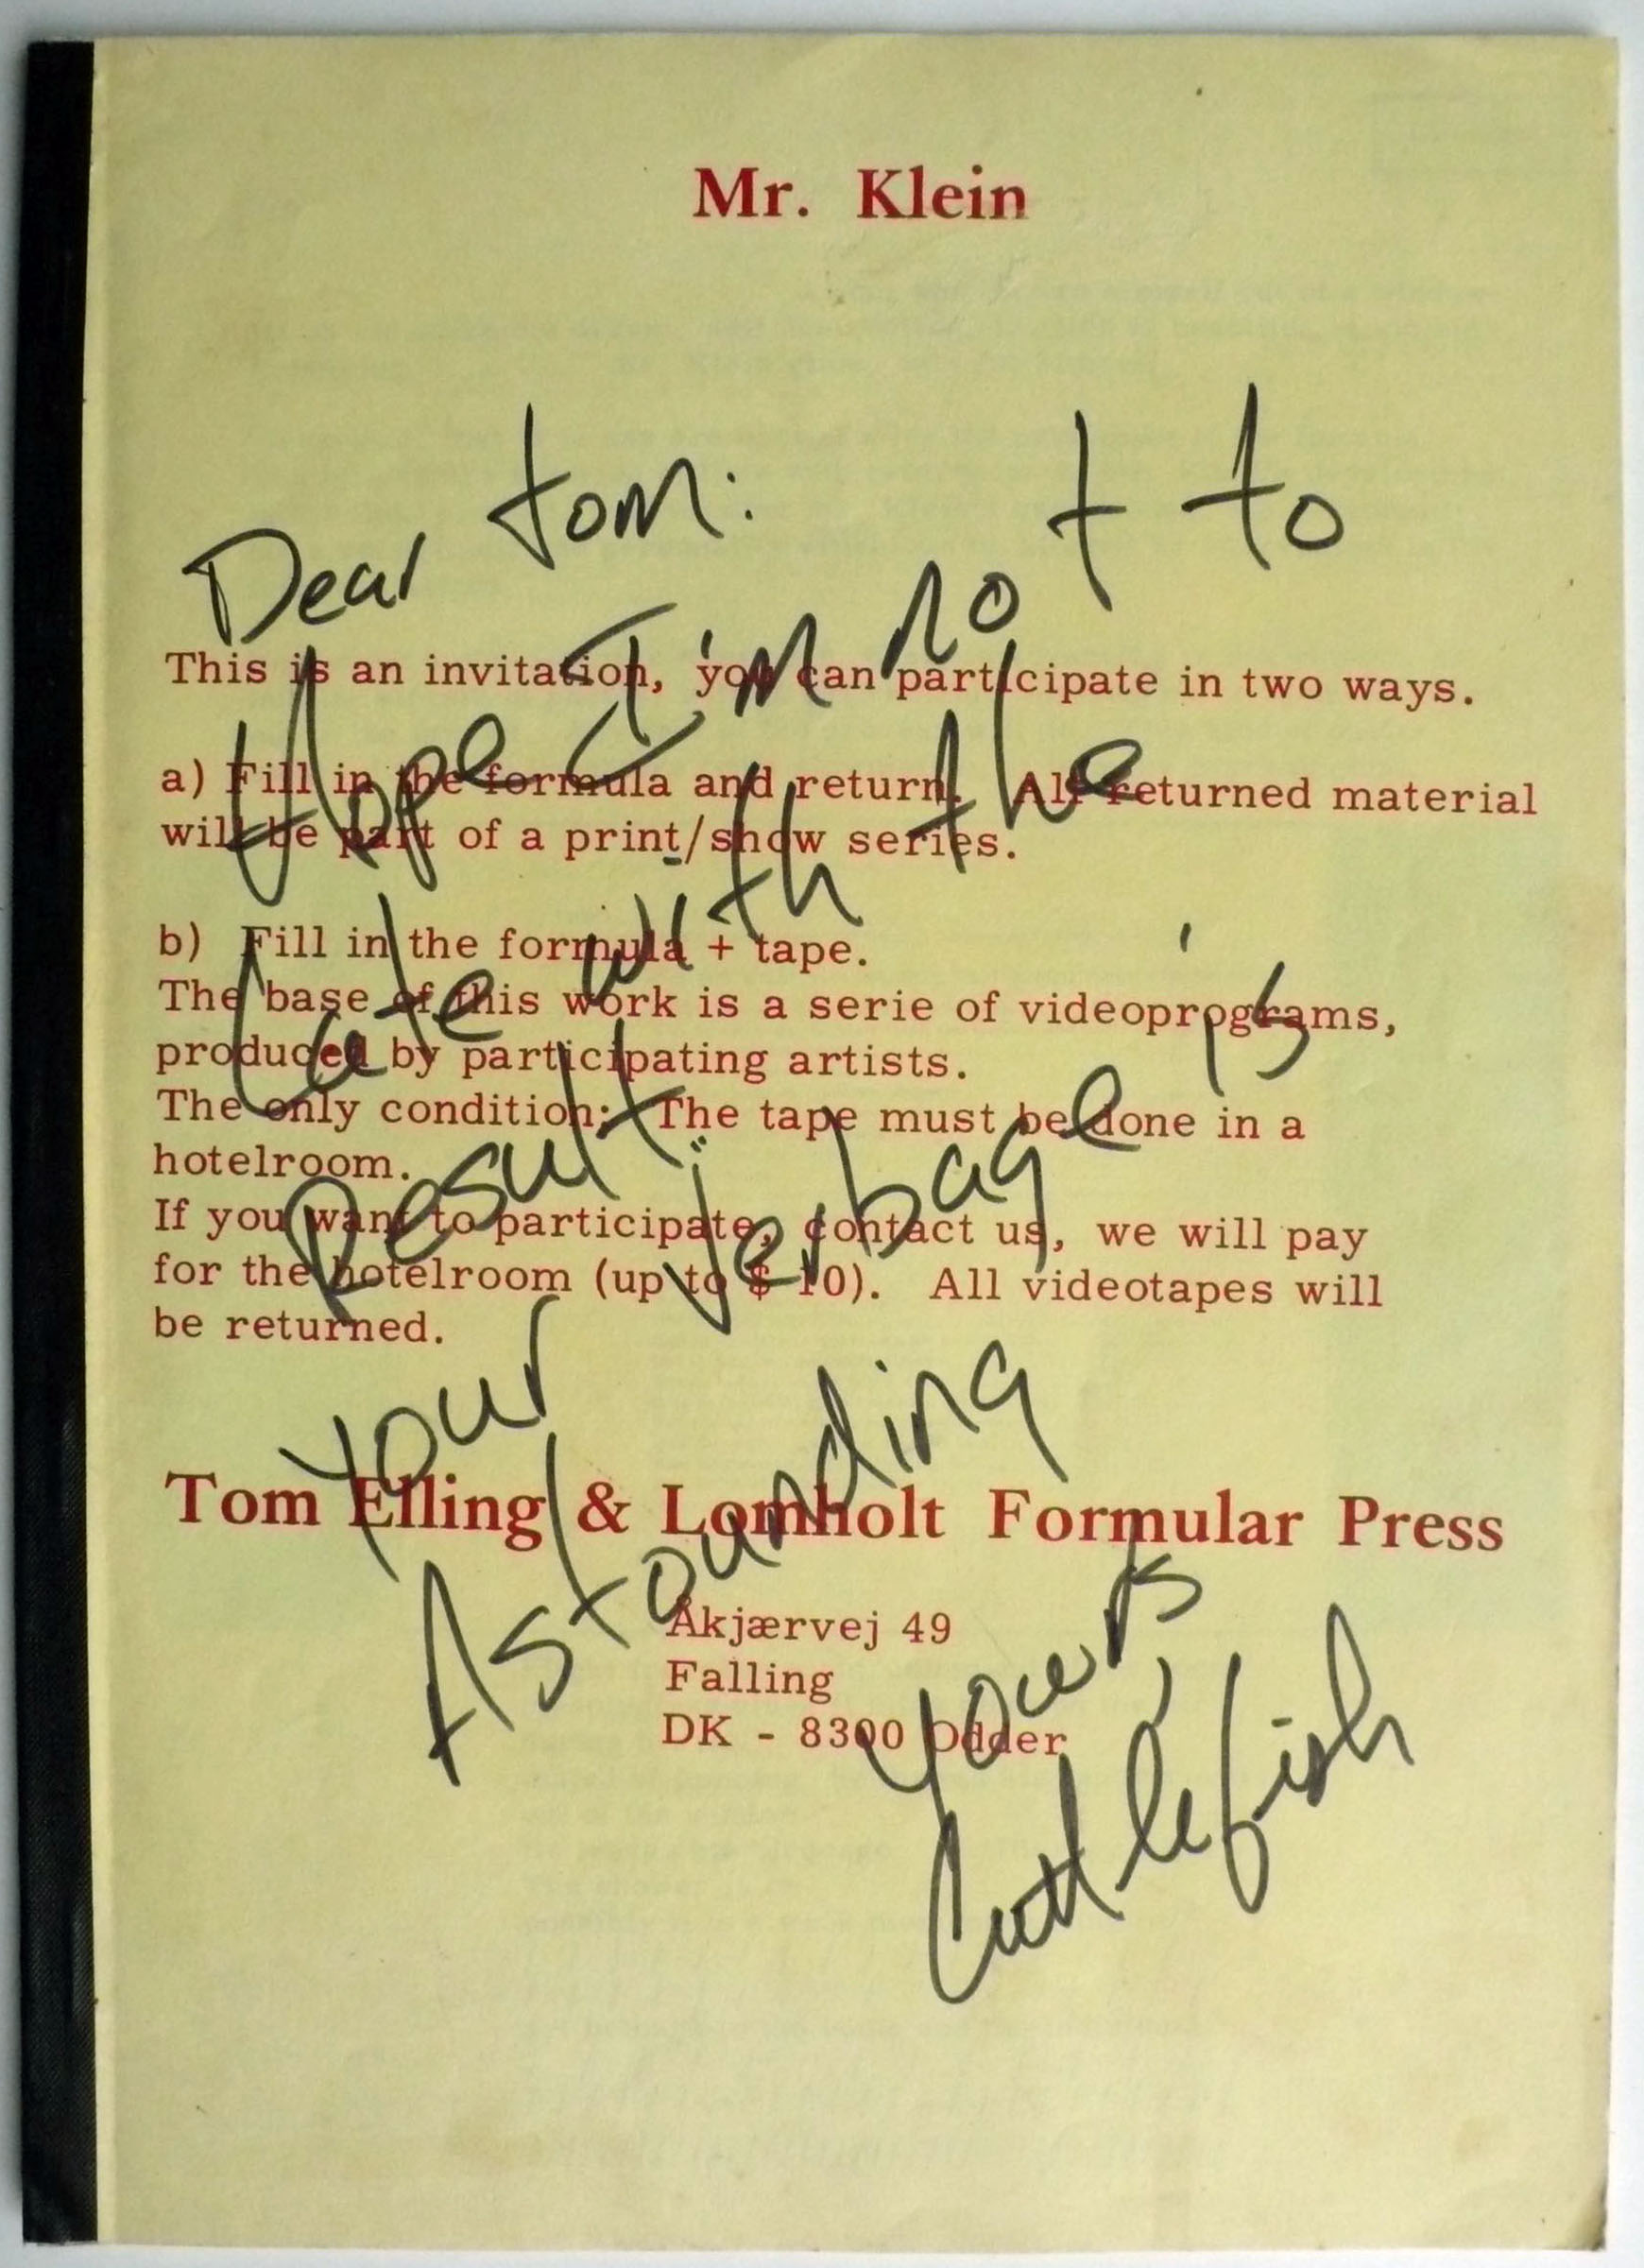 Mr. Klein
This is an invitation, you can participate in two ways.
a) Fill in the formula and return. All returned material
will be part of a print/show series.
b) Fill in the formula + tape.
The base of this work is a serie of videoprograms,
produced by participating artists.
The only condition: The tape must be done in a
hotelroom.
If you want to participate, contact us, we will pay
for the hotelroom (up to $ 10). All videotapes will
be returned.
Tom Elling & Lomholt Formular Press
Åkjærvej 49
Falling
DK - 8300 Odder
Dear tom:
Hope I'm not to
Late with the
Result.
Your verbage is
Astounding
Yours,
Cuttlefish